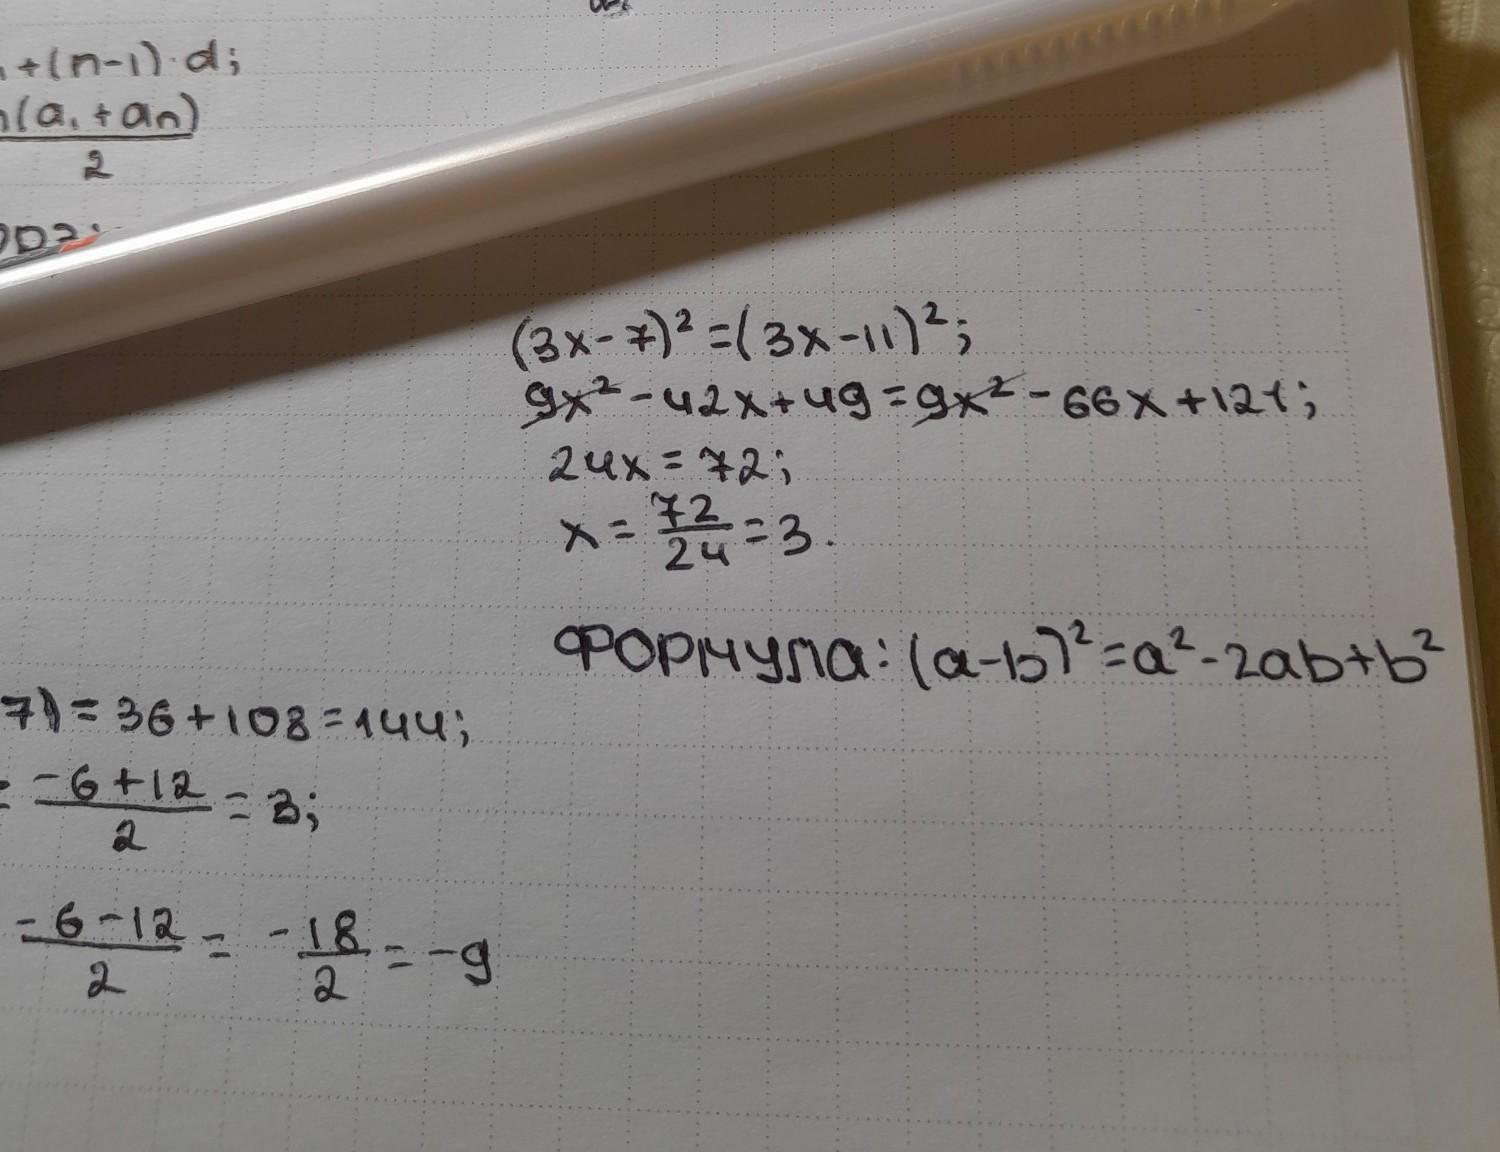 +(n-1)·d;
(a₁+aₙ)
2
(3x-7)²=(3x-11)²;
9x²-42x+49=9x²-66x+121;
24x=72;
x=72/24=3.
Формула: (a-b)²=a²-2ab+b²
7)=36+108=144;
-6+12/2=3;
-6-12/2=-18/2=-9